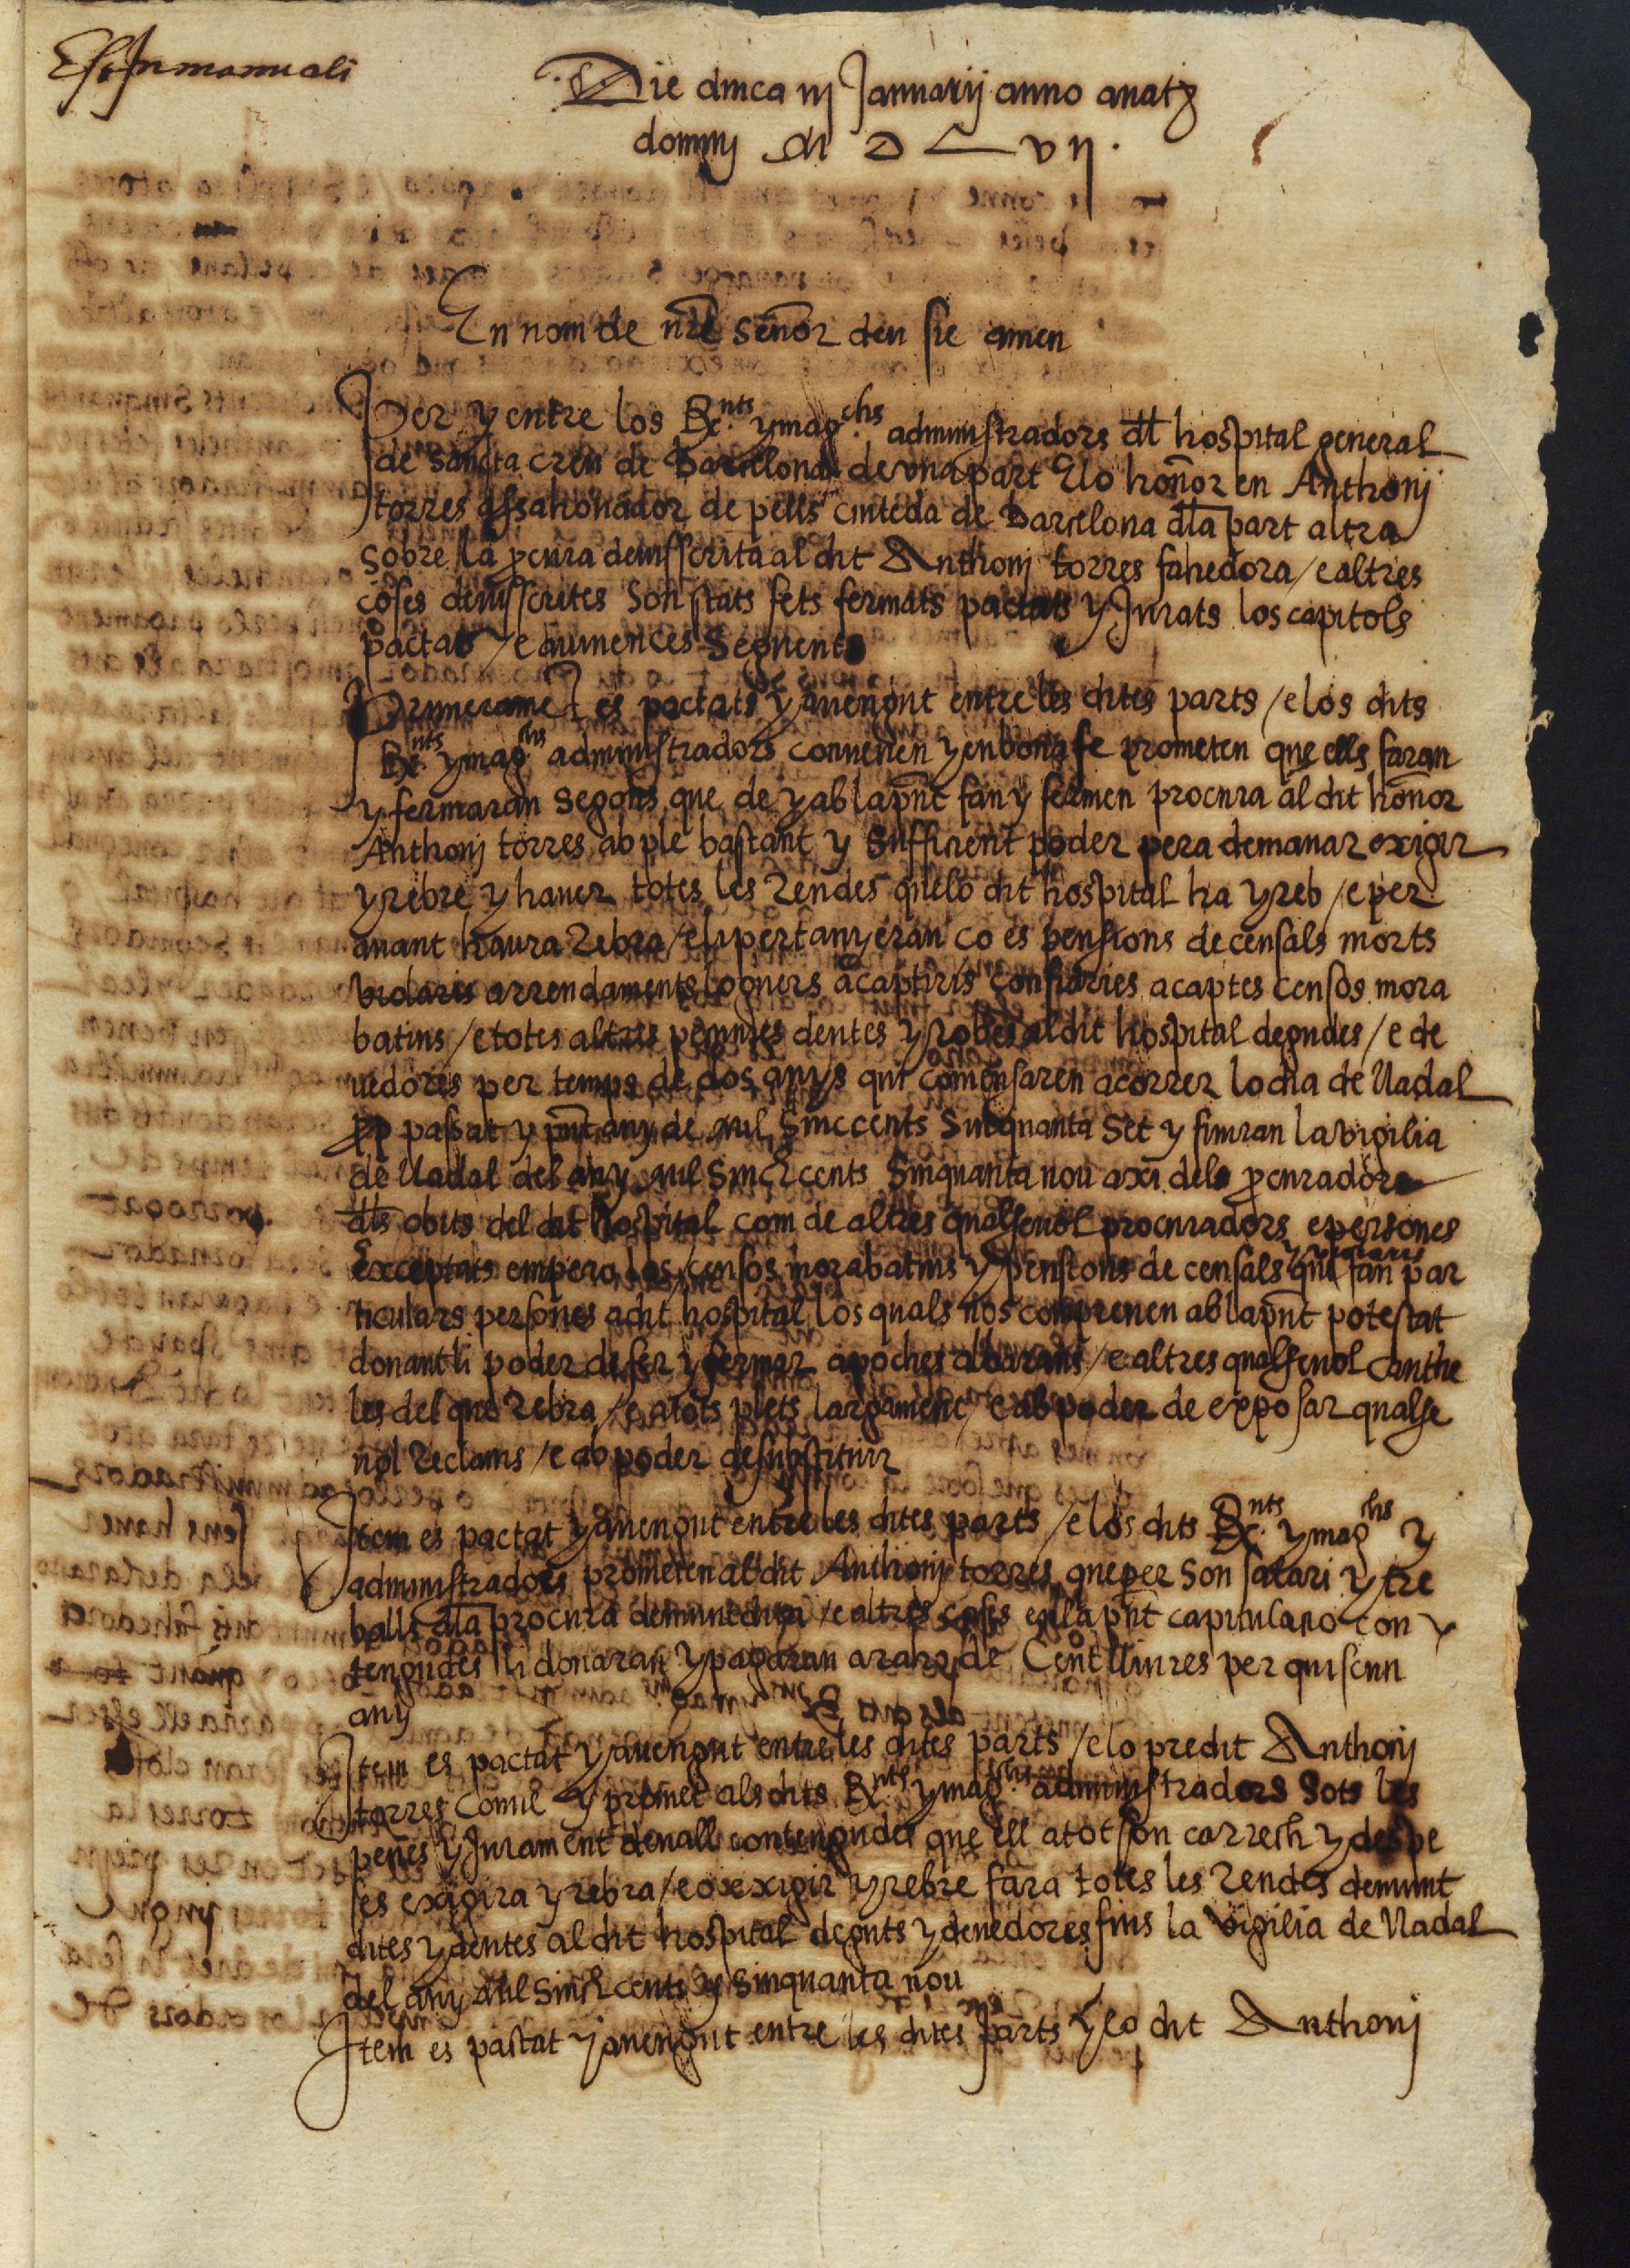 Est in manuali
Die dmca iij Januarij anno anatz
dominj M D L vij.
En nom de nre senor deu sie amen
Per y entre los Rnts ymagchs administradors dtl hospital general
de sancta creu de Barcelona de una part E lo honor en Anthonj
torres assahonador de pells ciuteda de Barcelona dla part altra
sobre la pcura deiusscrita al dit Anthonj torres fahedora / e altres
coses deiusscrites son stats fets fermats pactats y Jurats los capitols
pactats / e auinences seguents
Primerament es pactats y auengut entre les dites parts / e los dits
Rnts ymaghs administradors conuenen y en bona fe prometen que ells faran
y fermaran segons que de y ab la pnt fan y fermen procura al dit honor
Anthonj torres ab ple bastant y sufficient poder pera demanar exigir
y rebre y hauer totes les rendes quelo dit hospital ha y reb / e per
auant haura rebra / eli pertanyeran ço es pensions de censals morts
violaris arrendaments loguers acaptiris confraries acaptes censos mora
batins / e totes altres peccunies deutes y robes al dit hospital degudes / e de
uedores per temps de dos anys qui comensaren a correr lo dia de Nadal
pp passat y pnt any de mil sinccents sinquanta set y finiran la vigilia
de Nadal del any mil sinchcents sinquanta nou axi dels pcuradors
dls obits del dit hospital com de altres qualseuol procuradors e persones
Exceptats empero los censos morabatins y pensions de censals y violaris que fan par
ticulars persones a dit hospital los quals nos comprenen ab la pnt potestat
donant li poder de fer y fermar apoches albarans / e altres qualseuol cauthe
les del que rebra / e a tots plets largament / e ab poder de exposar qualse
uol reclams / e ab poder de substituir
Item es pactat y auengut entre les dites parts / e los dits Rnts ymaghs y
administradors prometen al dit Anthonj torres que per son salari y tre
balls dla procura demunt dita / e altres coses en la pnt capitulatio con
tengudes li donaran y pagaran a raho de Cent lliures per quiscun
any
Item es pactat y auengut entre les dites parts / e lo predit Anthonj
torres conue y promet als dits Rnts ymaghs administradors sots les
penes y Jurament deuall contengudes que ell a tot son carrech y despe
ses exigira y rebra / e o exigir y rebre fara totes les rendes demunt
dites y deutes al dit hospital deguts y deuedores fins la vigilia de Nadal
del any mil sinchcents y sinquanta nou
Item es pactat y auengut entre les dites parts y lo dit Anthonj